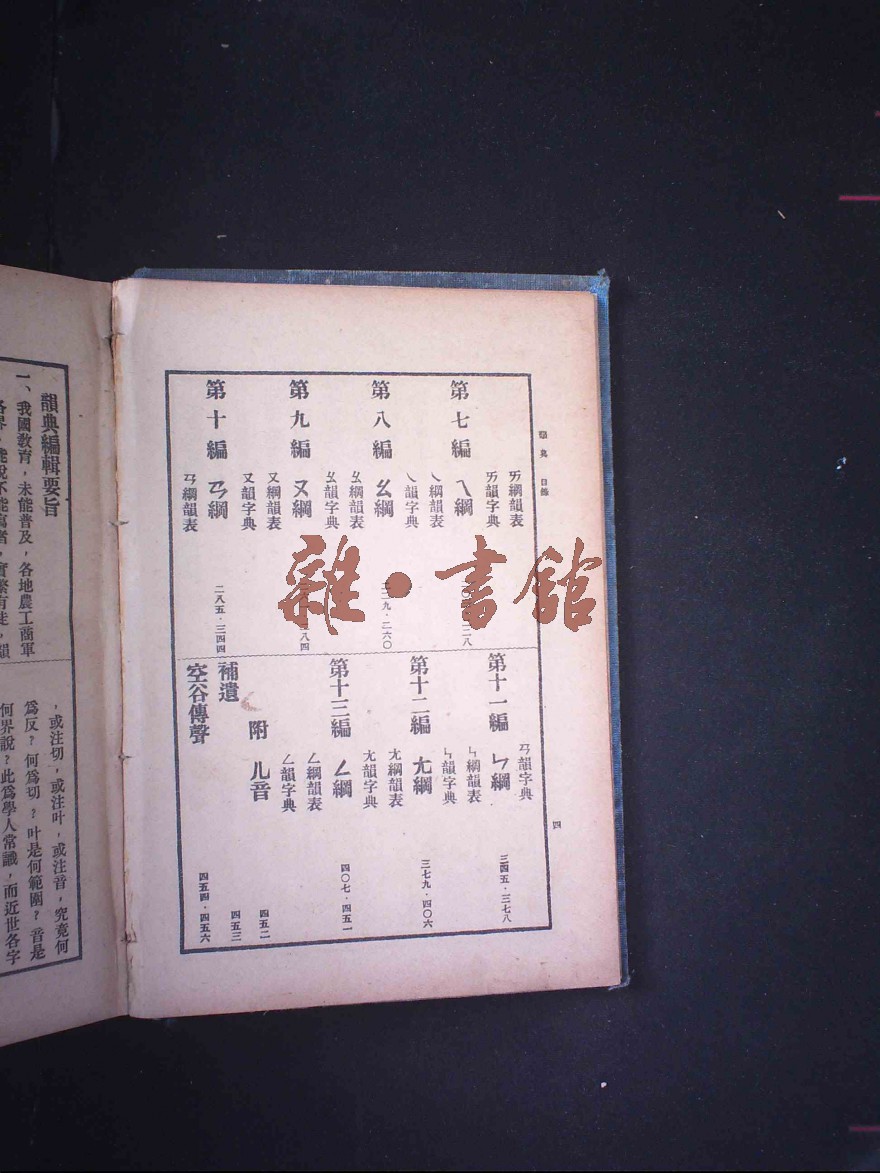 韻典 目錄
四
ㄞ綱韻表
ㄞ韻字典
第七編 ㄟ綱
ㄟ綱韻表
ㄟ韻字典
第八編 ㄠ綱
二二九·二六〇
ㄠ綱韻表
ㄠ韻字典
第九編 ㄡ綱
ㄡ綱韻表
ㄡ韻字典
第十編 ㄢ綱
二八五·三四四
ㄢ綱韻表
ㄢ韻字典
第十一編 ㄣ綱
三四五·三七八
ㄣ綱韻表
ㄣ韻字典
第十二編 ㄤ綱
三七九·四〇六
ㄤ綱韻表
ㄤ韻字典
第十三編 ㄥ綱
四〇七·四五一
ㄥ綱韻表
ㄥ韻字典
附 ㄦ音
四五二
補遺
四五三
空谷傳聲
四五四·四五六
雜·書館
韻典編輯要旨
一、我國教育,未能普及,各地農工商軍
各界,能說不能寫者,實繁有徒,韻
,或注切,或注叶,或注音,究竟何
爲反?何爲切?叶是何範圍?音是
何界說?此爲學人常識,而近世各字